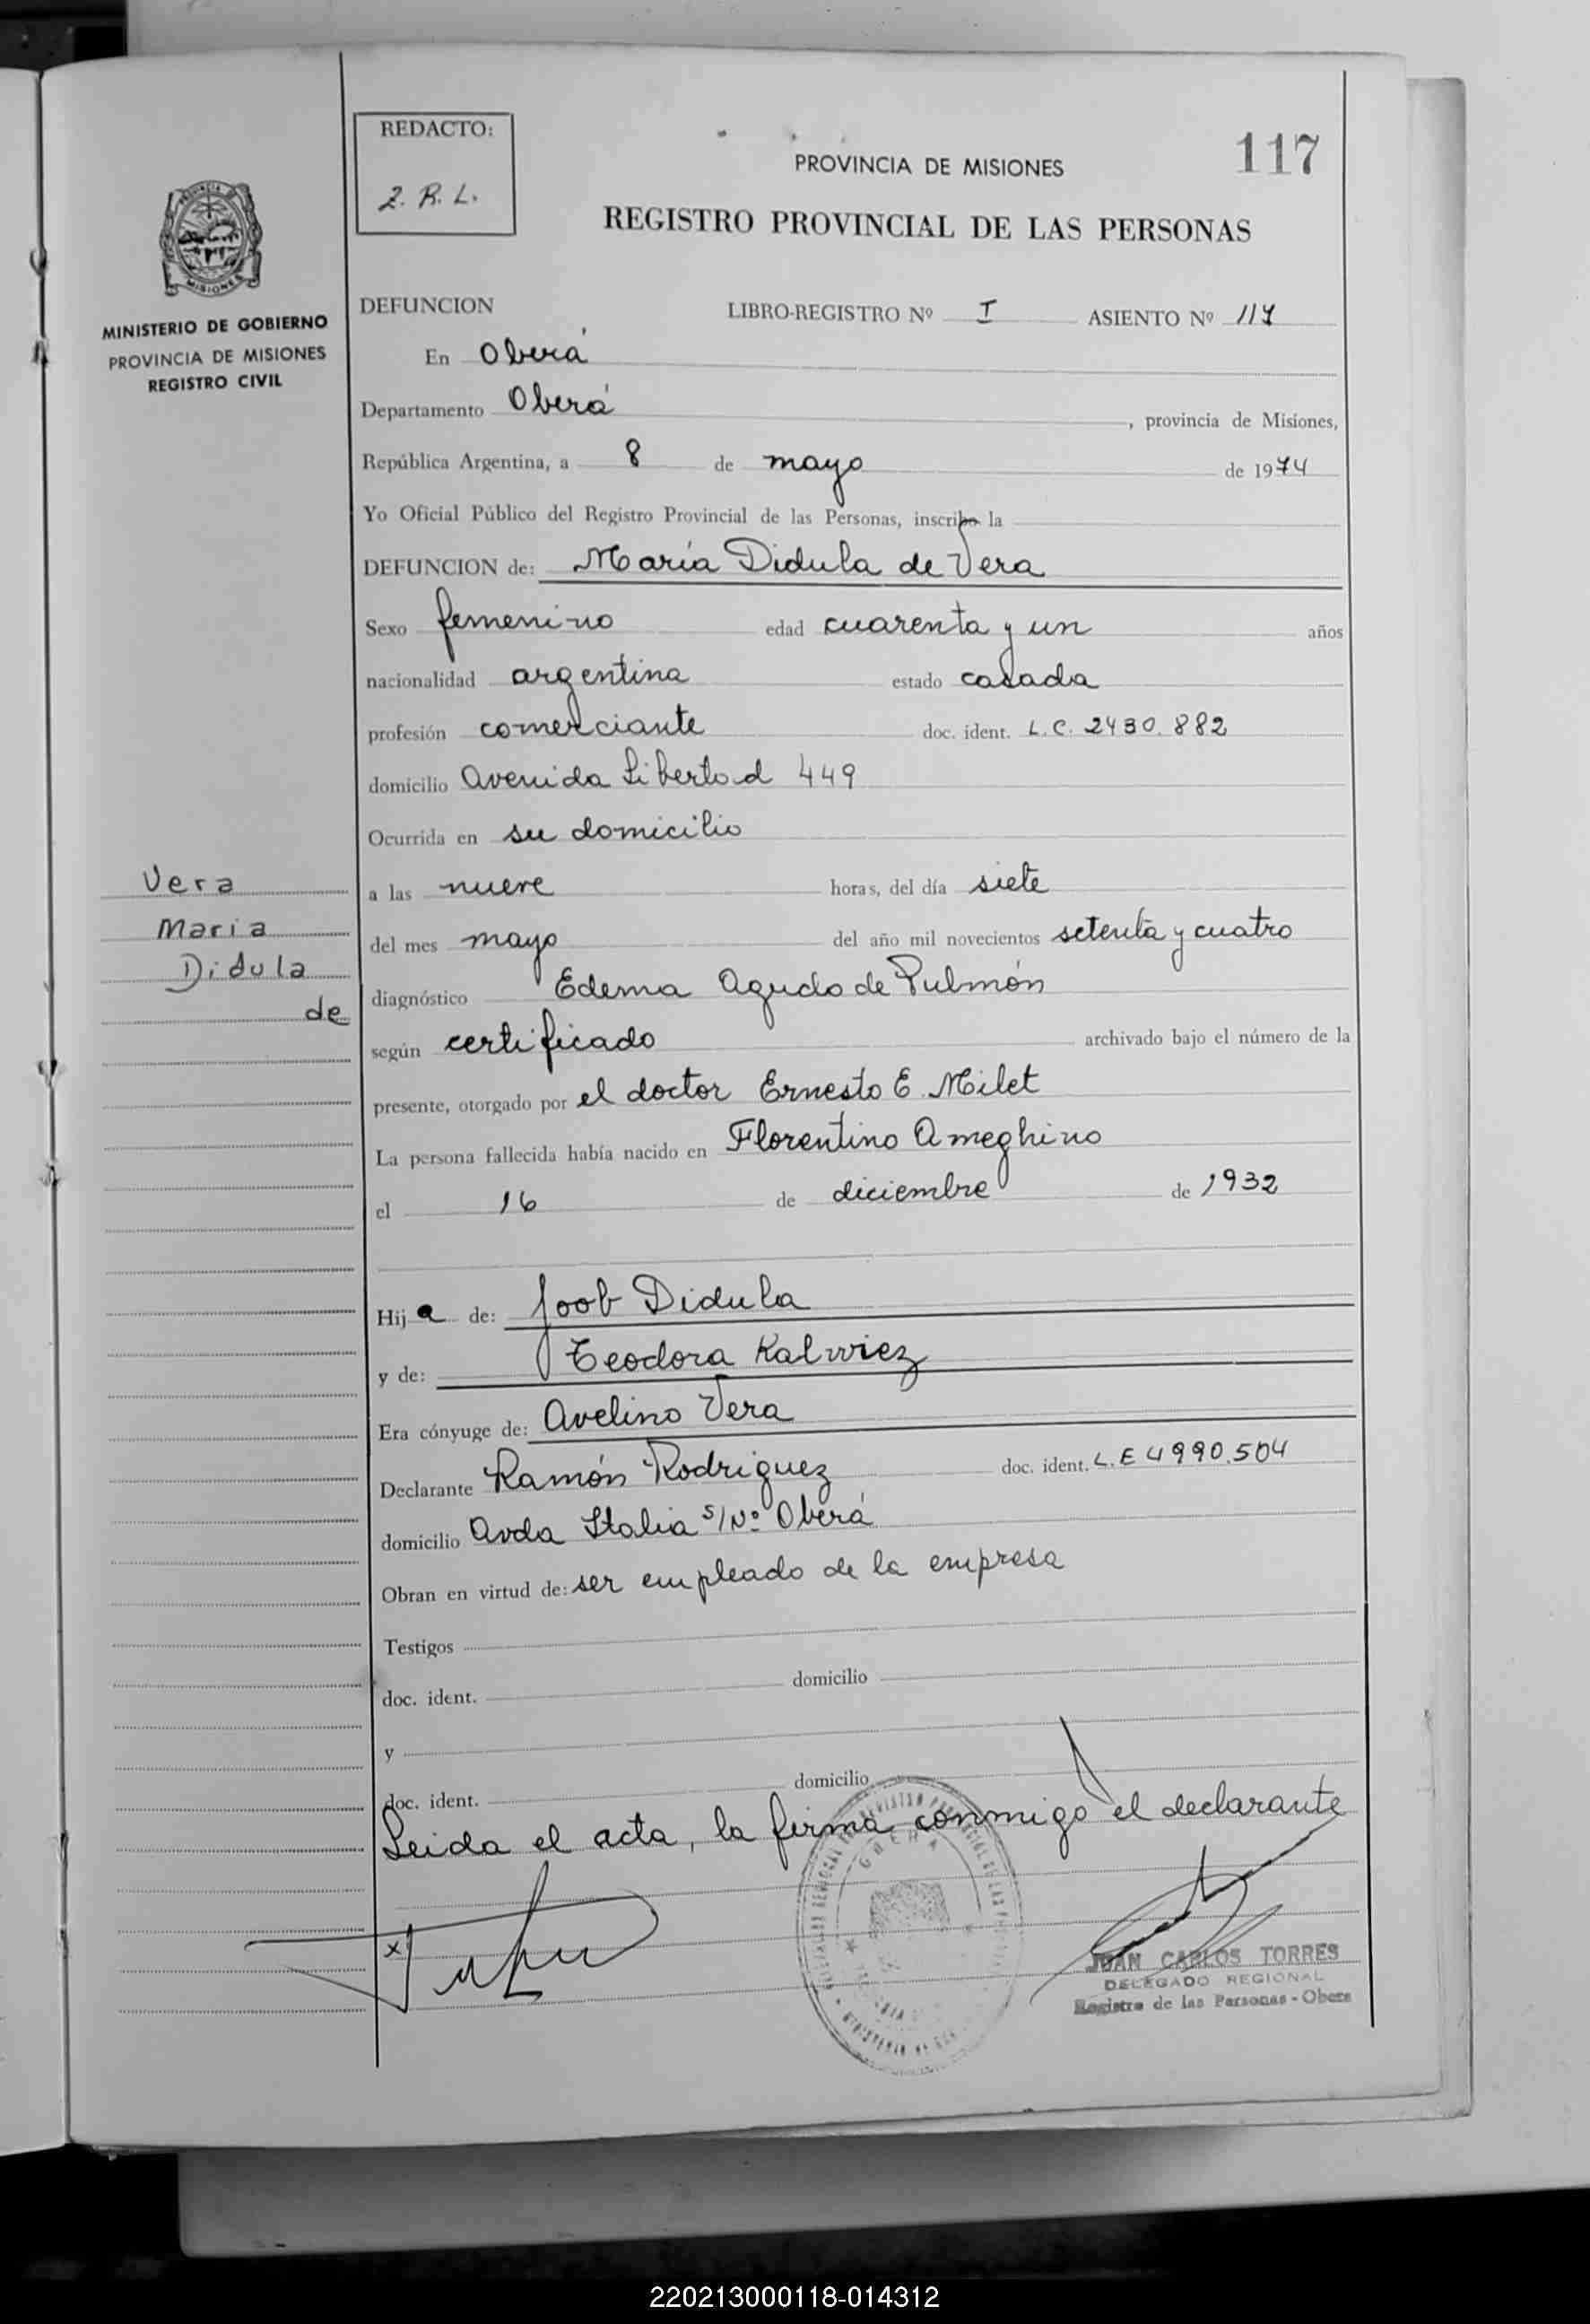 REDACTO:
Z. R. L.
117
PROVINCIA DE MISIONES
REGISTRO PROVINCIAL DE LAS PERSONAS
MISIONES
MINISTERIO DE GOBIERNO
PROVINCIA DE MISIONES
REGISTRO CIVIL
DEFUNCION LIBRO-REGISTRO Nº I ASIENTO Nº 117
En Oberá
Departamento Oberá , provincia de Misiones,
República Argentina, a 8 de mayo de 1974
Yo Oficial Público del Registro Provincial de las Personas, inscribo la
DEFUNCION de: María Didula de Vera
Sexo femenino edad cuarenta y un años
nacionalidad argentina estado casada
profesión comerciante doc. ident. L.C. 2430.882
domicilio Avenida Libertad 449
Ocurrida en su domicilio
a las nueve horas, del día siete
del mes mayo del año mil novecientos setenta y cuatro
diagnóstico Edema Agudo de Pulmón
según certificado archivado bajo el número de la
presente, otorgado por el doctor Ernesto E. Milet
La persona fallecida había nacido en Florentino Ameghino
el 16 de diciembre de 1932
Hij a de: Joob Didula
y de: Teodora Kalwiez
Era cónyuge de: Avelino Vera
Declarante Ramón Rodriguez doc. ident. L.E 4990.504
domicilio Avda Italia s/Nº Oberá
Obran en virtud de: ser empleado de la empresa
Testigos
doc. ident. domicilio
y
doc. ident. domicilio
Leida el acta, la firma conmigo el declarante
Vera
Maria
Didula
de
JUAN CARLOS TORRES
DELEGADO REGIONAL
Registro de las Personas - Obera
220213000118-014312